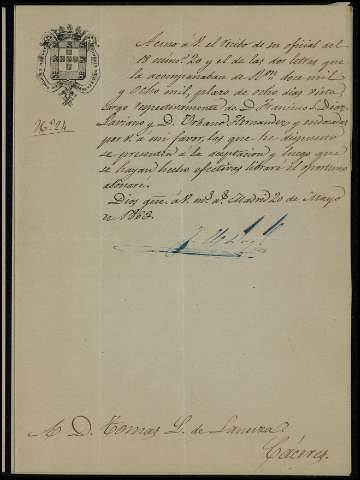 Acuso á V. el recibo de su oficial del
18 numº 20 y el de las dos letras que
la acompañaban de Rvn. doce mil
y Ocho mil, plazo de ocho dias vista
cargo respectivamente de D. Francisco Diaz
y D. Urbano Hernandez y endosadas
por V. a mi favor, las que he dispuesto
se presenten á la aceptacion y luego que
se hayan hecho efectivas libraré el oportuno
abonare.
Dios gue á V. ms. as. Madrid 20 de Mayo
de 1863.
Nº 24
A D. Tomas L. de
Cáceres.